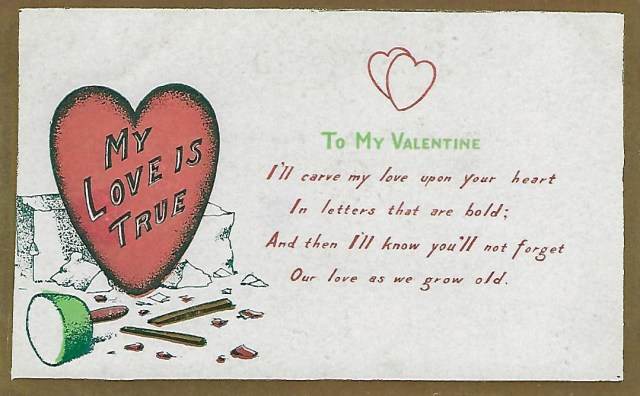 MY
LOVE IS
TRUE
TO MY VALENTINE
I'll carve my love upon your heart
In letters that are bold;
And then I'll know you'll not forget
Our love as we grow old.